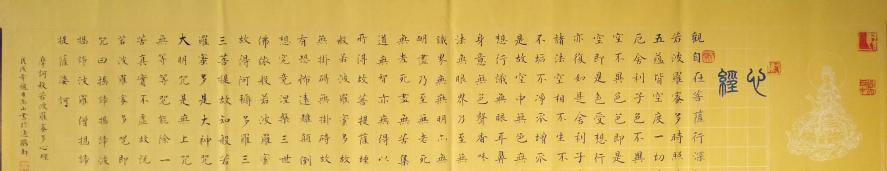 心經
觀自在菩薩行深
若波羅蜜多時照
五蘊皆空度一切
厄舍利子色不異
空不異色色即是
空即是色受想行
亦復如是舍利子
諸法空相不生不
不垢不淨不增不
是故空中無色無
想行識無眼耳鼻
身意無色聲香味
法無眼界乃至無
識界無無明亦無
明盡乃至無老死
無老死盡無苦集
道無智亦無得以
所得故菩提薩埵
般若波羅蜜多故
無掛礙無掛礙故
有恐怖遠離顛倒
想究竟涅槃三世
佛依般若波羅蜜
故得阿耨多羅三
三菩提故知般若
羅蜜多是大神咒
大明咒是無上咒
無等等咒能除一
苦真實不虛故說
若波羅蜜多咒即
咒曰揭諦揭諦波
揭諦波羅僧揭諦
提薩婆訶
摩訶般若波羅蜜多心經